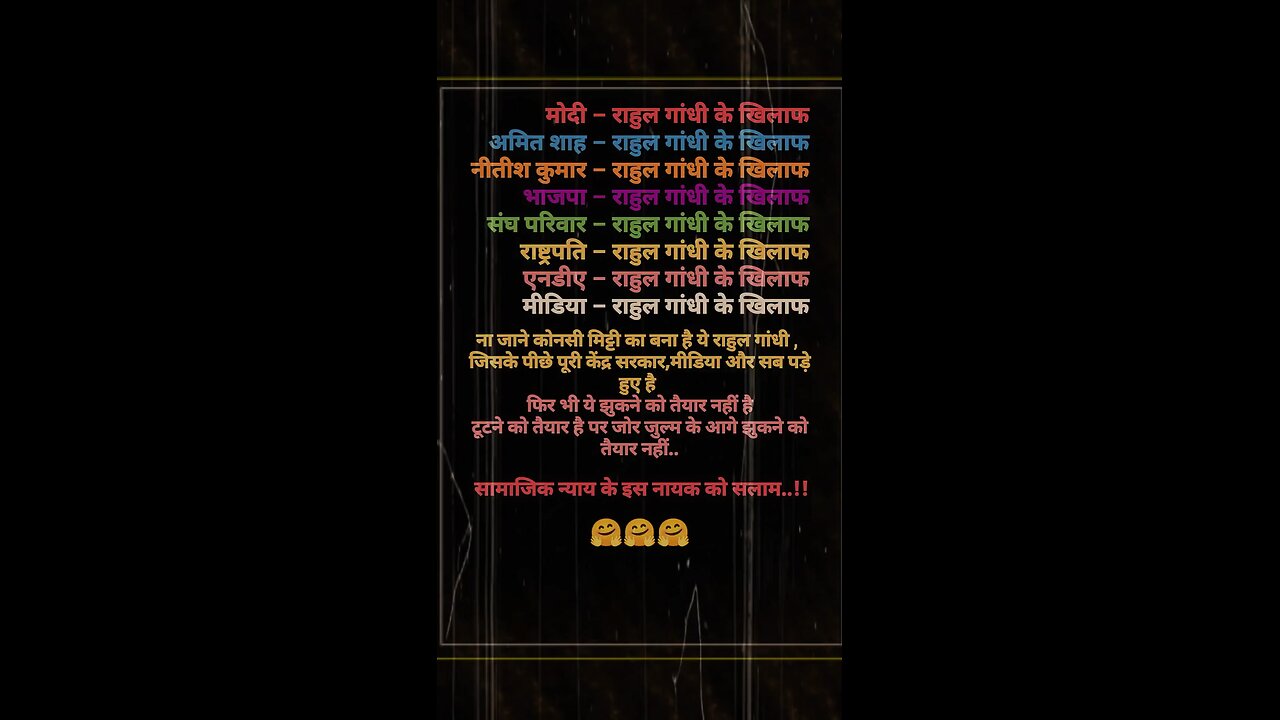 मोदी – राहुल गांधी के खिलाफ
अमित शाह – राहुल गांधी के खिलाफ
नीतीश कुमार – राहुल गांधी के खिलाफ
भाजपा – राहुल गांधी के खिलाफ
संघ परिवार – राहुल गांधी के खिलाफ
राष्ट्रपति – राहुल गांधी के खिलाफ
एनडीए – राहुल गांधी के खिलाफ
मीडिया – राहुल गांधी के खिलाफ
ना जाने कोनसी मिट्टी का बना है ये राहुल गांधी ,
जिसके पीछे पूरी केंद्र सरकार,मीडिया और सब पड़े
हुए है
फिर भी ये झुकने को तैयार नहीं है
टूटने को तैयार है पर जोर जुल्म के आगे झुकने को
तैयार नहीं..
सामाजिक न्याय के इस नायक को सलाम..!!
🤗🤗🤗